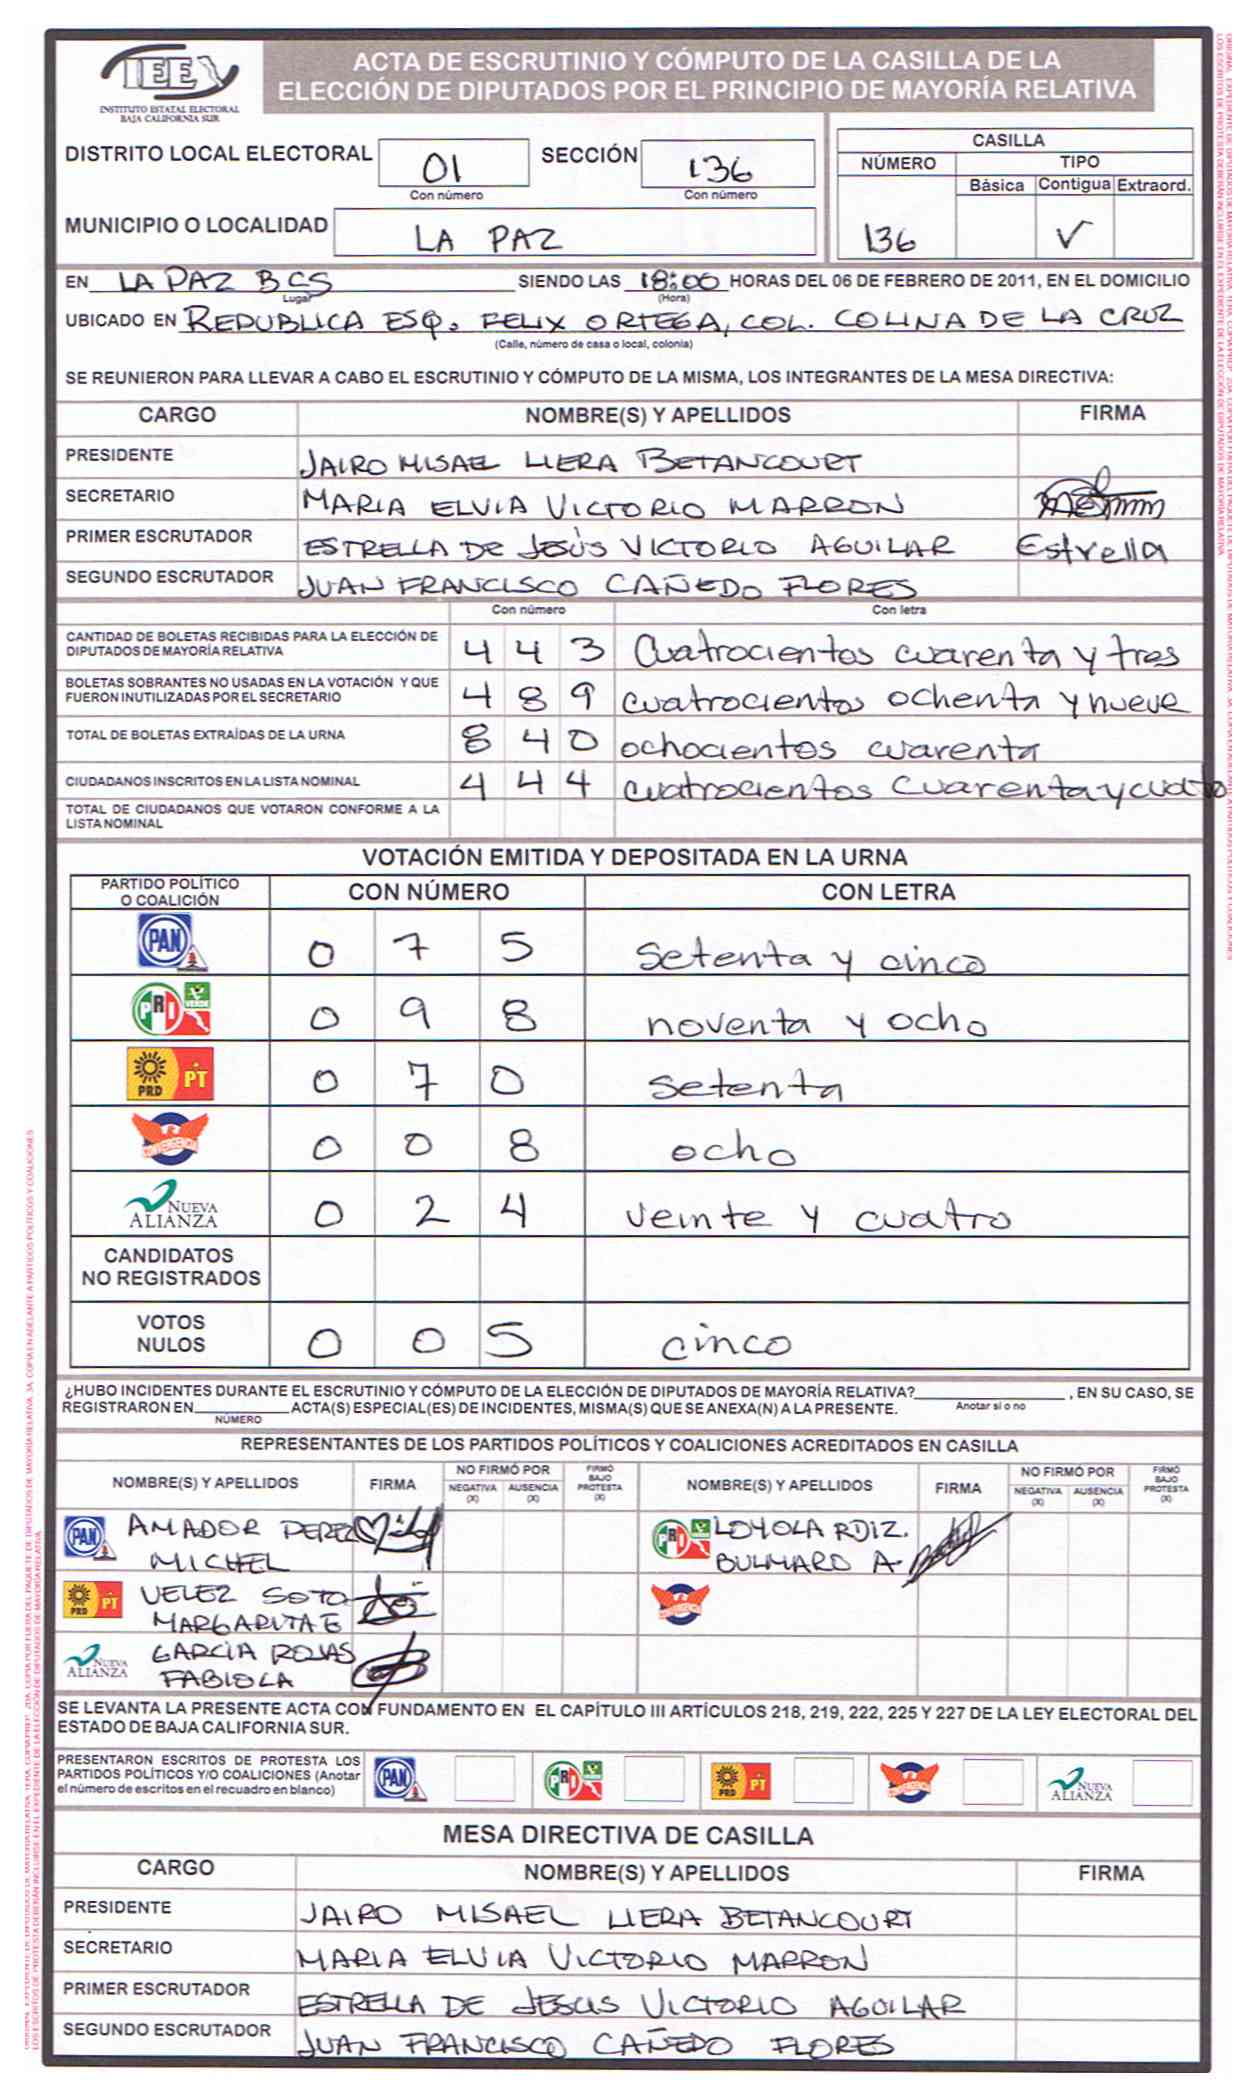 IEEV
INSTITUTO ESTATAL ELECTORAL
BAJA CALIFORNIA SUR
ACTA DE ESCRUTINIO Y CÓMPUTO DE LA CASILLA DE LA
ELECCIÓN DE DIPUTADOS POR EL PRINCIPIO DE MAYORÍA RELATIVA
DISTRITO LOCAL ELECTORAL 01 SECCIÓN 136
Con número Con número
MUNICIPIO O LOCALIDAD LA PAZ
CASILLA
NÚMERO TIPO
Básica Contigua Extraord.
136 ✓
EN LA PAZ BCS SIENDO LAS 18:00 HORAS DEL 06 DE FEBRERO DE 2011, EN EL DOMICILIO
Lugar (Hora)
UBICADO EN REPUBLICA ESQ. FELIX ORTEGA, COL. COLINA DE LA CRUZ
(Calle, número de casa o local, colonia)
SE REUNIERON PARA LLEVAR A CABO EL ESCRUTINIO Y CÓMPUTO DE LA MISMA, LOS INTEGRANTES DE LA MESA DIRECTIVA:
CARGO NOMBRE(S) Y APELLIDOS FIRMA
PRESIDENTE JAIRO MISAEL LIERA BETANCOURT
SECRETARIO MARIA ELVIA VICTORIO MARRON
PRIMER ESCRUTADOR ESTRELLA DE JESÚS VICTORIO AGUILAR Estrella
SEGUNDO ESCRUTADOR JUAN FRANCISCO CAÑEDO FLORES
Con número Con letra
CANTIDAD DE BOLETAS RECIBIDAS PARA LA ELECCIÓN DE
DIPUTADOS DE MAYORÍA RELATIVA 4 4 3 Cuatrocientos cuarenta y tres
BOLETAS SOBRANTES NO USADAS EN LA VOTACIÓN Y QUE
FUERON INUTILIZADAS POR EL SECRETARIO 4 8 9 cuatrocientos ochenta y nueve
TOTAL DE BOLETAS EXTRAÍDAS DE LA URNA 8 4 0 ochocientos cuarenta
CIUDADANOS INSCRITOS EN LA LISTA NOMINAL 4 4 4 cuatrocientos cuarenta y cuatro
TOTAL DE CIUDADANOS QUE VOTARON CONFORME A LA
LISTA NOMINAL
VOTACIÓN EMITIDA Y DEPOSITADA EN LA URNA
PARTIDO POLÍTICO
O COALICIÓN CON NÚMERO CON LETRA
PAN 0 7 5 setenta y cinco
PRI VERDE 0 9 8 noventa y ocho
PRD PT 0 7 0 setenta
CONVERGENCIA 0 0 8 ocho
NUEVA ALIANZA 0 2 4 veinte y cuatro
CANDIDATOS
NO REGISTRADOS
VOTOS
NULOS 0 0 5 cinco
¿HUBO INCIDENTES DURANTE EL ESCRUTINIO Y CÓMPUTO DE LA ELECCIÓN DE DIPUTADOS DE MAYORÍA RELATIVA? , EN SU CASO, SE
Anotar sí o no
REGISTRARON EN ACTA(S) ESPECIAL(ES) DE INCIDENTES, MISMA(S) QUE SE ANEXA(N) A LA PRESENTE.
NÚMERO
REPRESENTANTES DE LOS PARTIDOS POLÍTICOS Y COALICIONES ACREDITADOS EN CASILLA
NOMBRE(S) Y APELLIDOS FIRMA NO FIRMÓ POR NEGATIVA (X) AUSENCIA (X) FIRMÓ BAJO PROTESTA (X) NOMBRE(S) Y APELLIDOS FIRMA NO FIRMÓ POR NEGATIVA (X) AUSENCIA (X) FIRMÓ BAJO PROTESTA (X)
PAN AMADOR PEREZ PRI VERDE LOYOLA RDIZ.
MICHEL BULMARO A.
PRD PT VELEZ SOTO CONVERGENCIA
MARGARITA E
NUEVA ALIANZA GARCIA ROJAS
FABIOLA
SE LEVANTA LA PRESENTE ACTA CON FUNDAMENTO EN EL CAPÍTULO III ARTÍCULOS 218, 219, 222, 225 Y 227 DE LA LEY ELECTORAL DEL
ESTADO DE BAJA CALIFORNIA SUR.
PRESENTARON ESCRITOS DE PROTESTA LOS
PARTIDOS POLÍTICOS Y/O COALICIONES (Anotar
el número de escritos en el recuadro en blanco)
PAN PRI VERDE PRD PT CONVERGENCIA NUEVA ALIANZA
MESA DIRECTIVA DE CASILLA
CARGO NOMBRE(S) Y APELLIDOS FIRMA
PRESIDENTE JAIRO MISAEL LIERA BETANCOURT
SECRETARIO MARIA ELVIA VICTORIO MARRON
PRIMER ESCRUTADOR ESTRELLA DE JESUS VICTORIO AGUILAR
SEGUNDO ESCRUTADOR JUAN FRANCISCO CAÑEDO FLORES